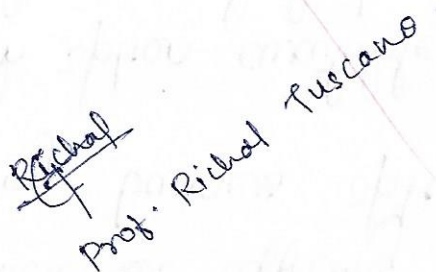 Richal
Prof. Richal Tuscano